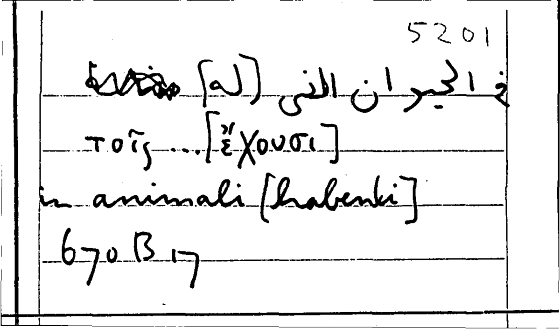 5201
في الحيوان الذى [له]
τοῖς ... [ἔχουσι]
in animali [habenti]
670 B 17